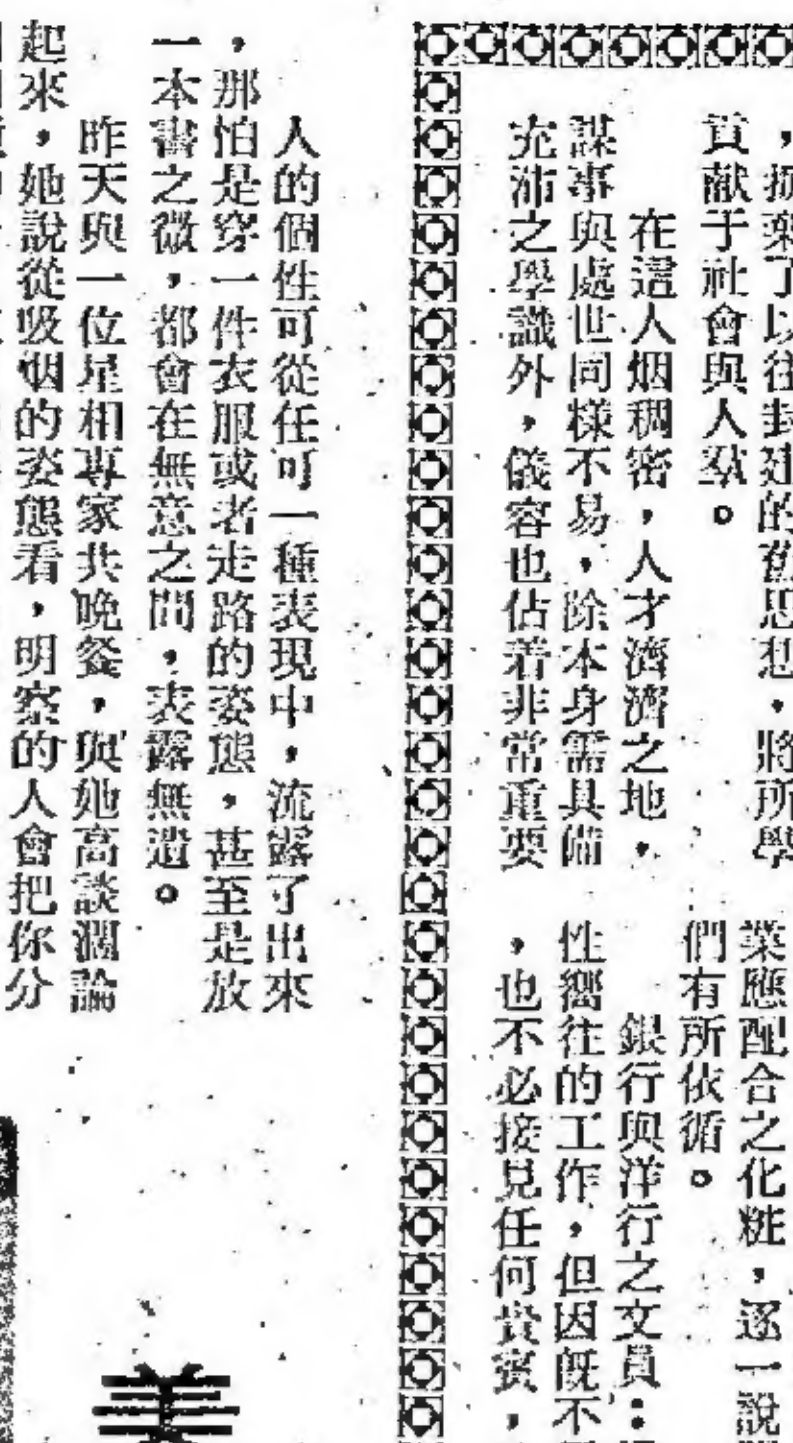 ，摒棄了以往封建的舊思想，將所學
貢献于社會與人羣。
在這人烟稠密，人才濟濟之地，
謀事與處世同樣不易，除本身需具備
充沛之學識外，儀容也佔着非常重要
業應配合之化粧，逐一說
們有所依循。
銀行與洋行之文員：
性嚮往的工作，但因既不
，也不必接見任何貴賓，
人的個性可從任可一種表現中，流露了出來
，那怕是穿一件衣服或者走路的姿態，甚至是放
一本書之微，都會在無意之間，表露無遺。
昨天與一位星相專家共晚餐，與她高談濶論
起來，她說從吸烟的姿態看，明察的人會把你分